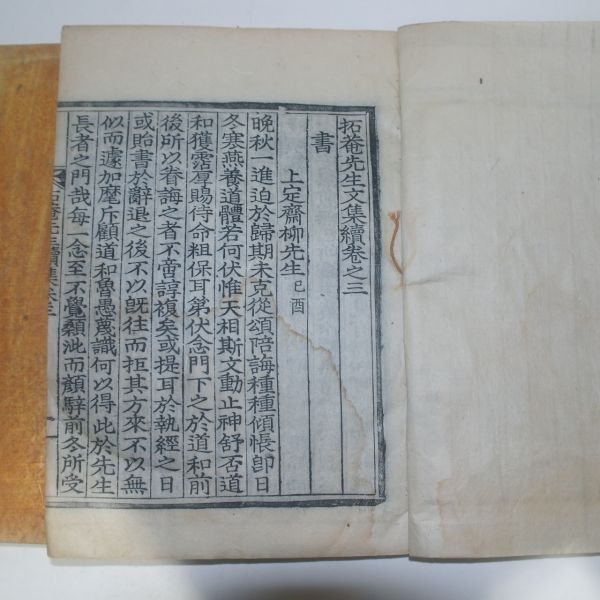 拓菴先生文集續卷之三
書
上定齋柳先生 己酉
晩秋一進迫於歸期未克從頌陪誨種種傾悵卽日
冬寒燕養道體若何伏惟天相斯文動止神舒否道
和獲霑厚賜待命粗保耳第伏念門下之於道和前
後所以眷誨之者不啻諄複矣或提耳於執經之日
或貽書於辭退之後不以旣往而拒其方來不以無
似而遽加麾斥顧道和魯愚蔑識何以得此於先生
長者之門哉每一念至不覺顙泚而顔騂前冬所受